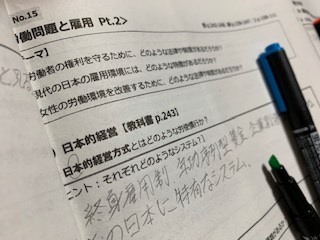 No.15
働問題と雇用 Pt.2>
ーマ】
労働者の権利を守るために、どのような法律や制度があるだろうか?
現代の日本の雇用環境には、どのような特徴があるだろうか?
女性の労働環境を改善するために、どのような法律や制度があるだろうか?
日本的経営【教科書 p.243】
日本的経営方式とはどのような労使慣行か?
ヒント:それぞれどのようなシステム?
終身雇用制 年功序列型賃金
の日本に特有なシステム。